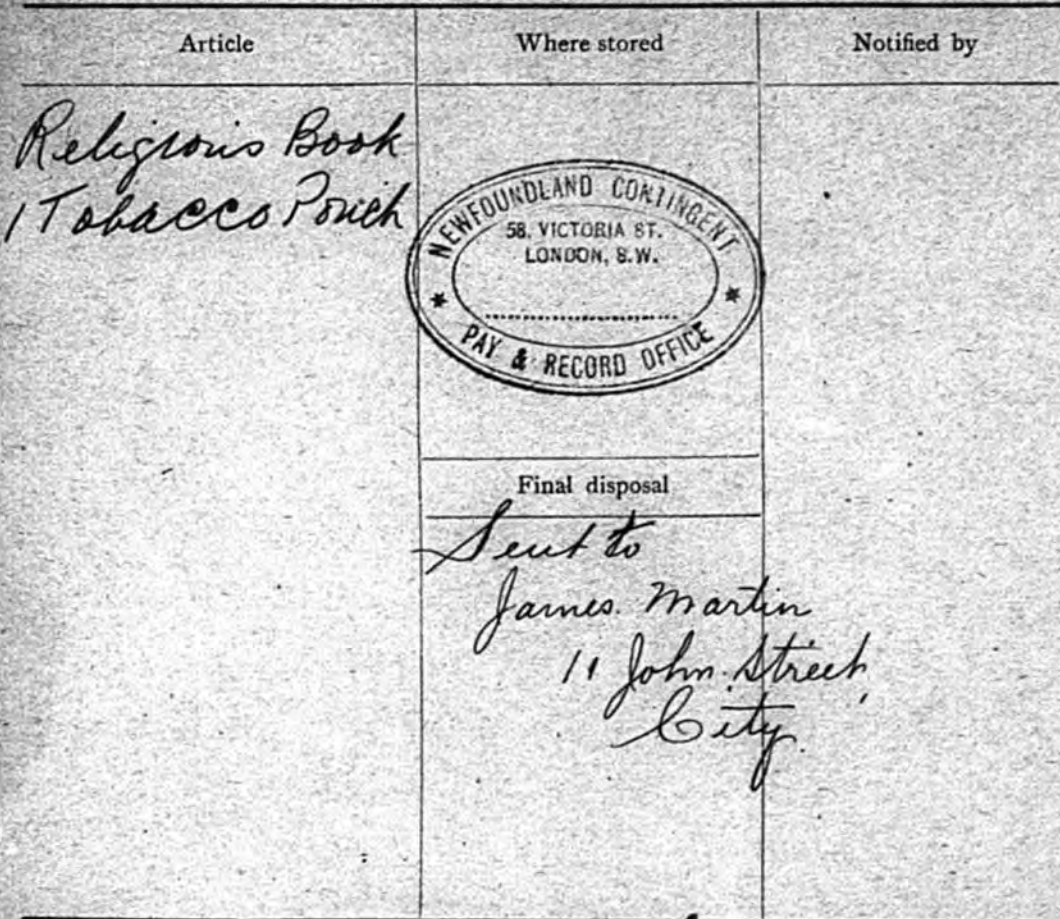 Article
Where stored
Notified by
Religious Book
1 Tobacco Pouch
NEWFOUNDLAND CONTINGENT
58, VICTORIA ST.
LONDON, S.W.
PAY & RECORD OFFICE
Final disposal
Sent to
James Martin
11 John Street,
City